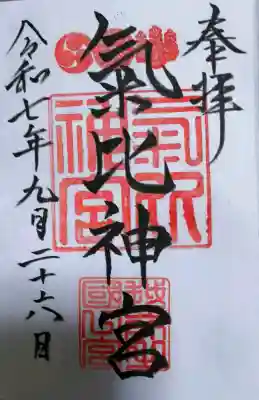 奉拝
氣比神宮
令和七年九月二十六日
氣比神宮